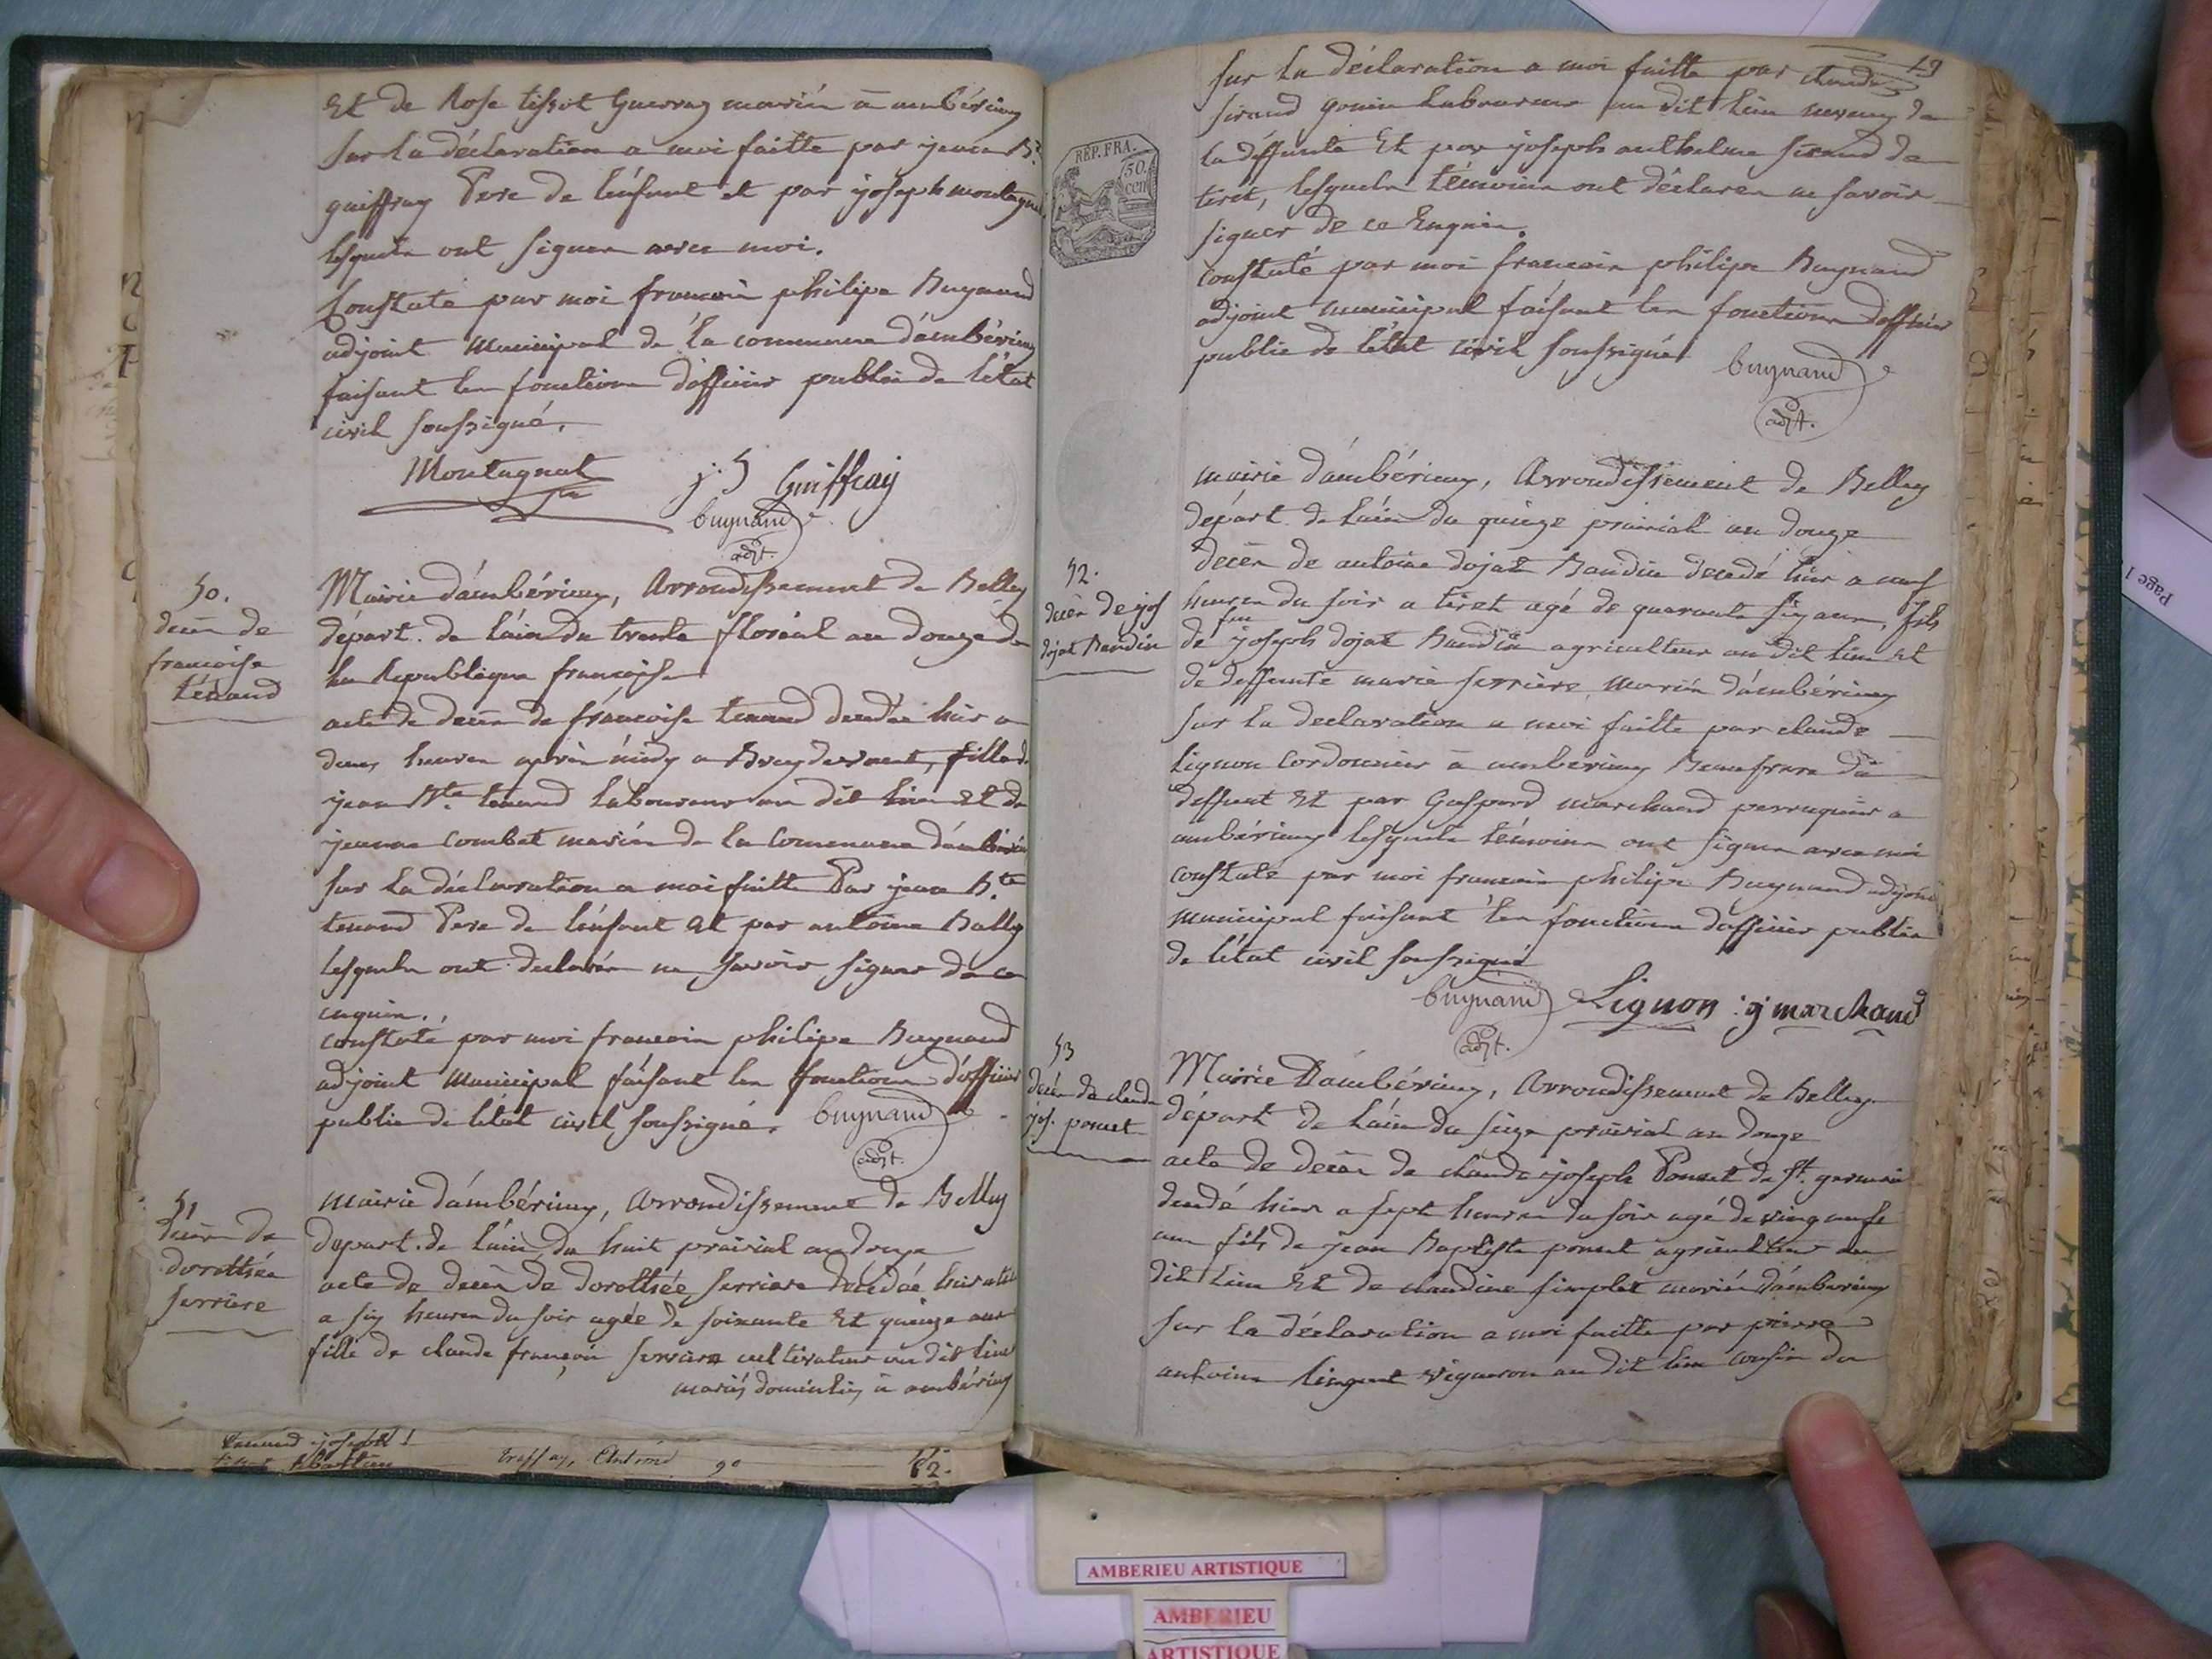 Et de Rose tissot Guerray mariés à ambérieux
sur la déclaration a moi faitte par jean Bte
guiffray Pere de lenfant et par joseph montagnat
lesquels ont signer avec moi.
Constaté par moi francois philipe Buynand
adjoint municipal de la commune d'ambérieux
faisant les fonctions d'officier public de l'état
civil soussigné.
Montagnat j B Guiffray
buynand
adjt.
50.
decès de
francoise
ténand
Mairie d'ambérieux, Arrondissement de Belley
départ. de l'ain du trente floréal an douze de
la Republique francoise
acte de decès de francoise tenand decedée hier a
deux heures après midy a Breydevent, fille de
jean Bte tenand laboureur au dit lieu Et de
jeanne Combet mariés de la Commune d'ambérieux
sur la déclaration a moi faitte Par jean Bte
tenand Pere de lenfant Et par antoine Bally
lesquels ont declarés ne savoir signer de ce
enquis.
constaté par moi francois philipe Buynand
adjoint municipal faisant les fonctions d'officier
public de létat civil soussigné.
buynand
adjt.
51
decès de
dorothée
serriere
mairie d'ambérieux, arrondissement de Belley
depart. de l'ain du huit prairial an douze
acte de decès de dorothée serriere decedée hier
a six heures du soir agée de soixante Et quinze ans
fille de claude françois serriere cultivateur au dit lieu
mariés domiciliés à ambérieux
joseph
Antoine 90
82.
19
sur la déclaration a moi faitte par claude
sirand gonin laboureur au dit lieu neveux de
la deffunte Et par joseph anthelme sirand de
tiret, lesquels témoins ont déclarer ne savoir
signer de ce Enquis.
constaté par moi francois philipe Buynand
adjoint municipal faisant les fonctions d'officier
public de létat civil soussigné.
buynand
adjt.
RÉP. FRA.
50.
cen
52.
decès de jos
dojat Baudin
mairie d'ambérieux, Arrondissement de Belley
départ. de l'ain du quinze prairial an douze
decès de antoine dojat Baudin decedé hier a neuf
heures du soir a tiret agé de quarante six ans, fils
de feu joseph dojat Baudin agriculteur au dit lieu Et
de deffunte marie serriere mariés d'ambérieux
sur la declaration a moi faitte par claude
Lignon Cordonnier à ambérieux Beaufrere du
deffunt Et par Gaspard marchand perruquier a
ambérieux lesquels témoins ont signer avec moi
constaté par moi francois philipe Buynand adjoint
municipal faisant les fonctions d'officier public
de l'état civil soussigné
buynand Lignon : g marchand
adjt.
53
decès de claude
jos. poncet
Mairie D'ambérieux, Arrondissement de Belley
départ de l'ain du seize prairial an douze
acte de decès de claude joseph Poncet de St. germain
decedé hier a sept heures du soir agé de vingt neuf
ans fils de jean Baptiste poncet agriculteur au
dit lieu Et de claudine simplet mariés d'ambérieux
sur la déclaration a moi faitte par pierre
antoine vigneron au dit lieu cousin du
Page 1
AMBERIEU ARTISTIQUE
AMBERIEU
ARTISTIQUE